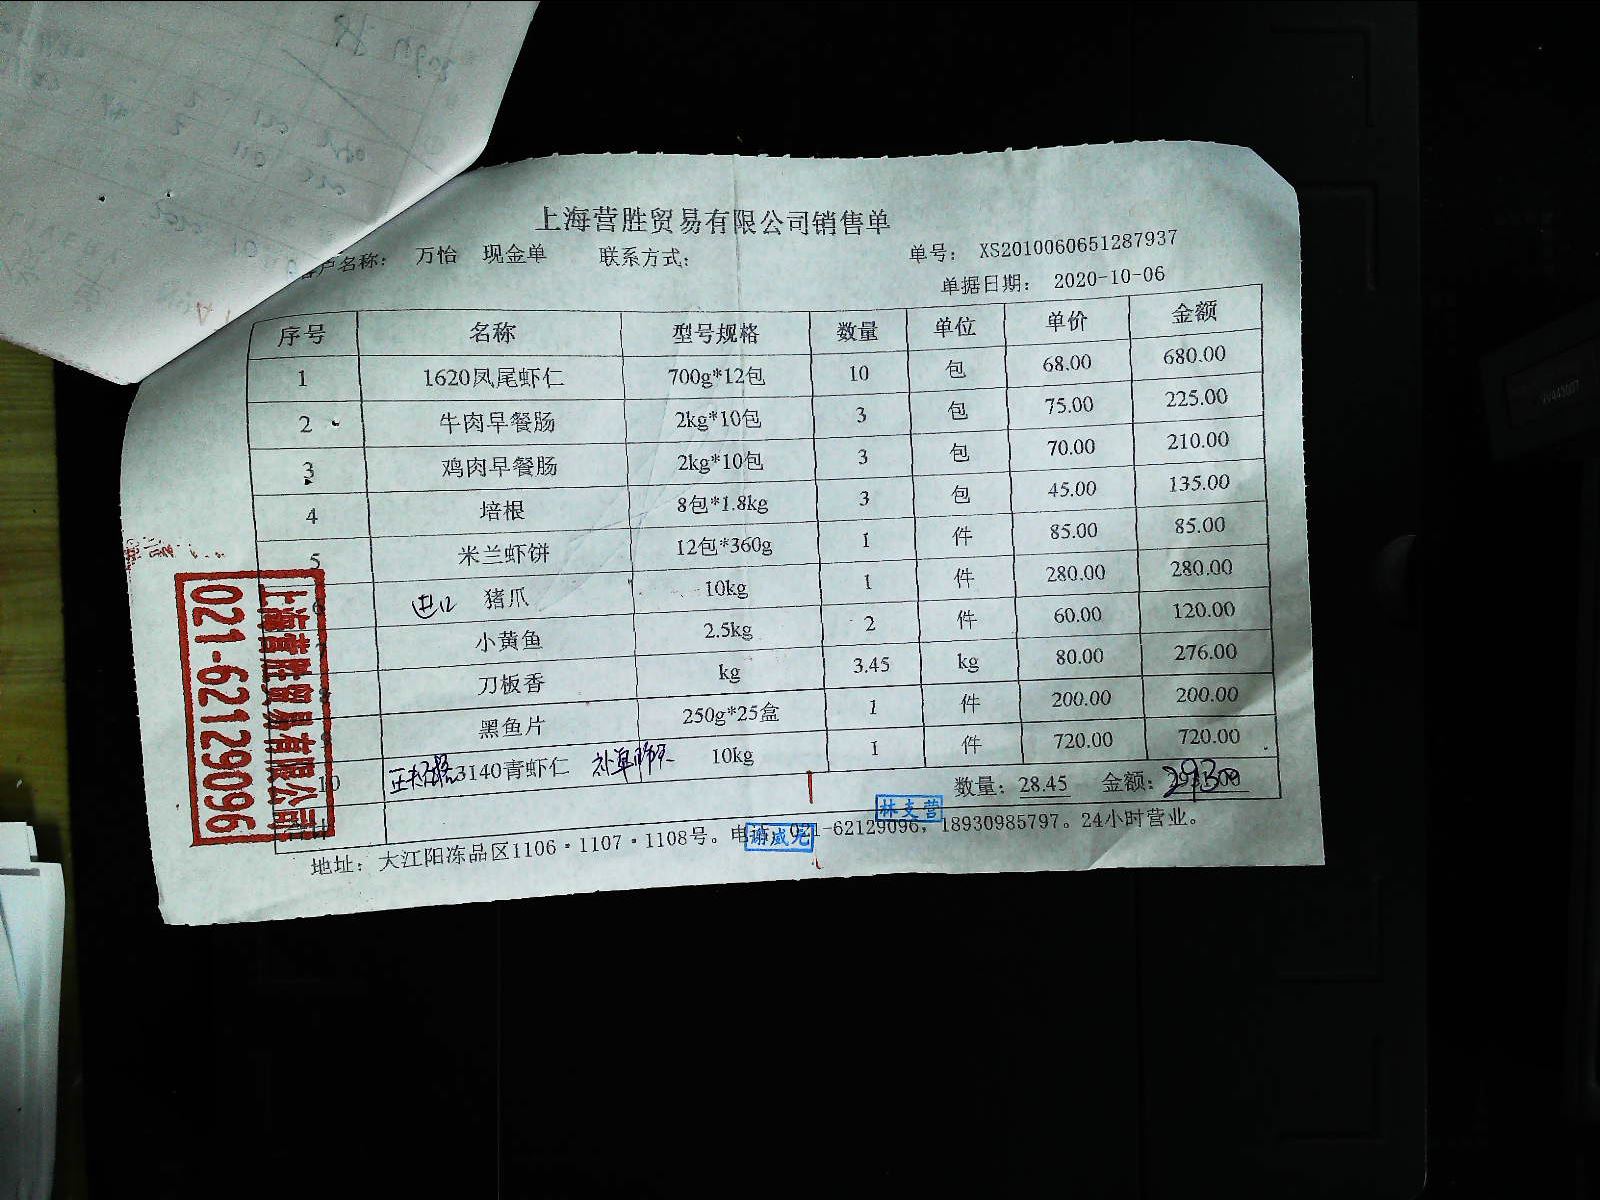 上海营胜贸易有限公司销售单
客户名称: 万怡 现金单 联系方式: 单号: XS2010060651287937
单据日期: 2020-10-06
序号 名称 型号规格 数量 单位 单价 金额
1 1620凤尾虾仁 700g*12包 10 包 68.00 680.00
2 牛肉早餐肠 2kg*10包 3 包 75.00 225.00
3 鸡肉早餐肠 2kg*10包 3 包 70.00 210.00
4 培根 8包*1.8kg 3 包 45.00 135.00
5 米兰虾饼 12包*360g 1 件 85.00 85.00
6 进口 猪爪 10kg 1 件 280.00 280.00
7 小黄鱼 2.5kg 2 件 60.00 120.00
8 刀板香 kg 3.45 kg 80.00 276.00
9 黑鱼片 250g*25盒 1 件 200.00 200.00
10 3140青虾仁 10kg 1 件 720.00 720.00
合计 数量: 28.45 金额:
地址: 大江阳冻品区1106·1107·1108号。电话: 021-62129096, 18930985797。24小时营业。
上海营胜贸易有限公司
021-62129096
林支营